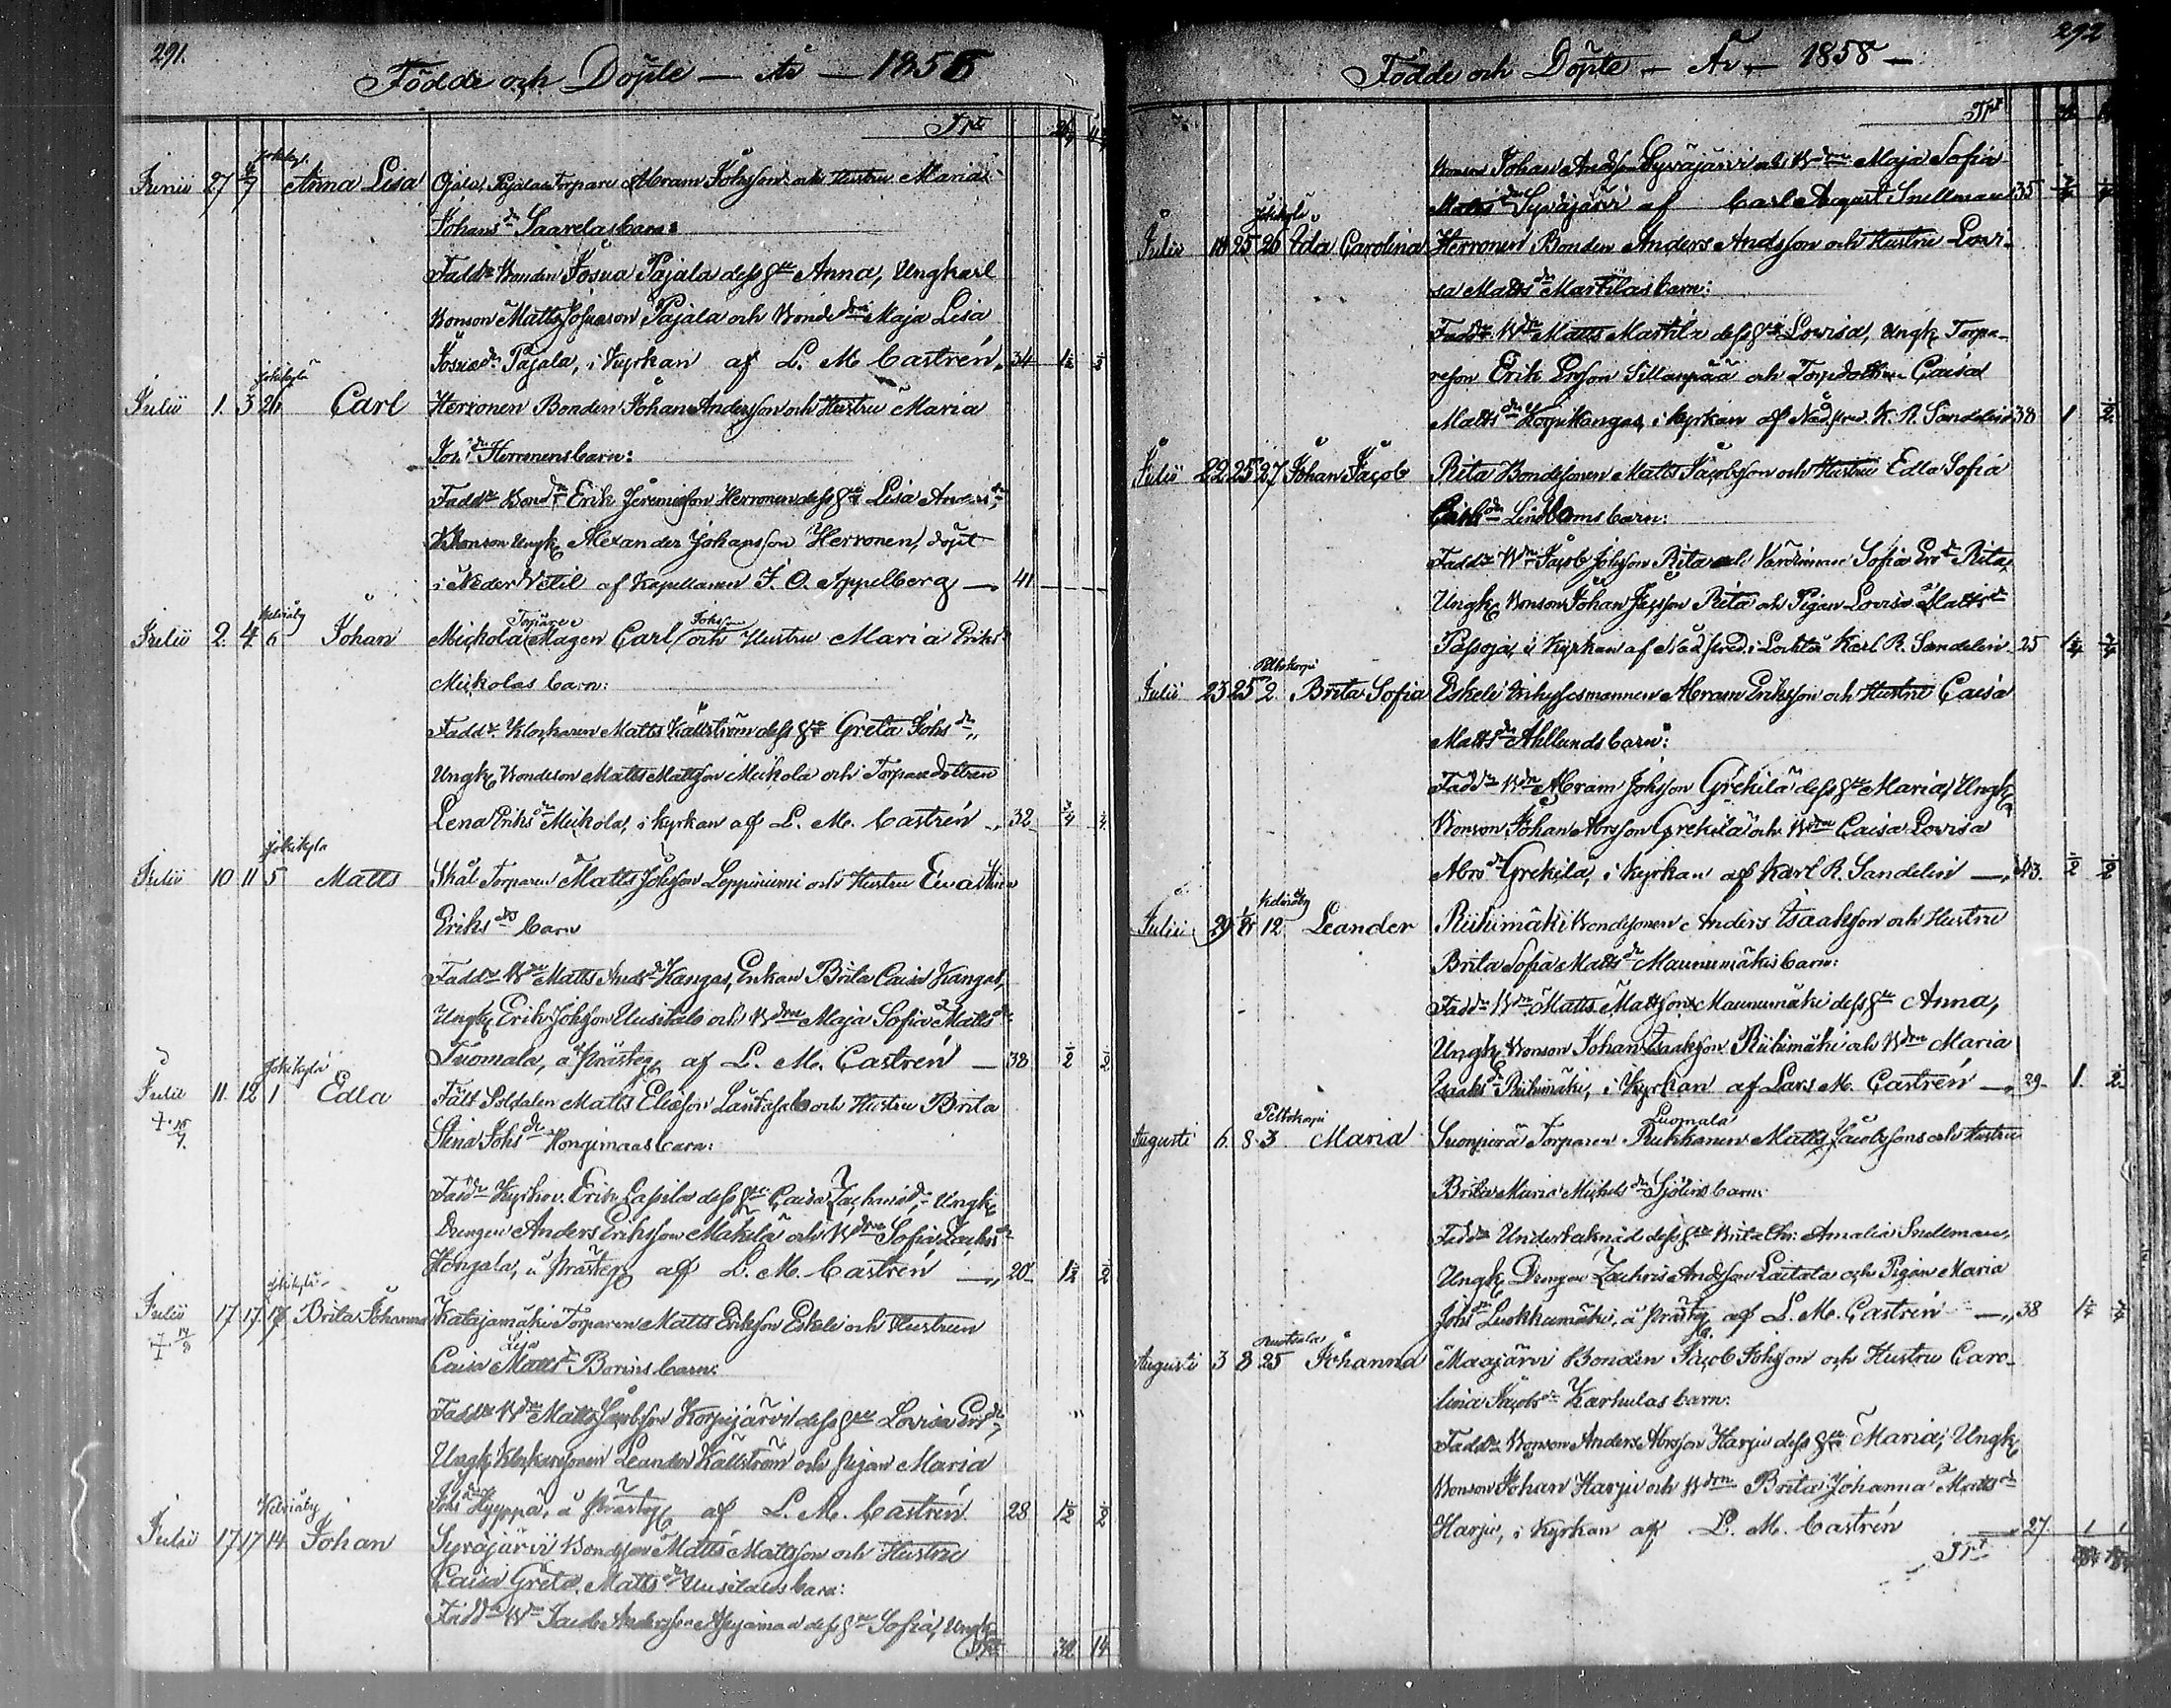 291.
Födde och Döpte — År — 1858
Trpt
Junii 27 4/7 Jokikylä Anna Lisa Ojala, Pajala Torpare Abram Johsson och Hustru Maria
Johans dr Saarelas barn:
Fadd. Bonden Josua Pajala dess h:u Anna, Ungkarl
Bonson Matts Josuason Pajala och Bonde dr Maja Lisa
Josuæ dr Pajala, i Kyrkan af L. M. Castrén. 34
Julii 1. 3 26 Jokikylä Carl Herronen Bonden Johan Andersson och Hustru Maria
Jos. dr Herronens barn:
Fadd. Bond. Erik Jeremiasson Herronen dess h:u Lisa
Bonson Ungk. Alexander Johansson Herronen, döpt
i Neder Vetil af Kapellanen F. O. Appelberg — 41
Julii 2. 4. 6 Kelviåby Johan Mickola Torpare Magen Carl Johsson och Hustru Maria Eriks dr
Mickolas barn:
Fadd. Klockaren Matts Källström dess h:u Greta Johs dr,
Ungk. Bondeson Matts Mattsson Mickola och Torpare dottren
Lena Eriks dr Mickola, i kyrkan af L. M. Castrén 32 3/4
Julii 10 11 5 Jokikylä Matts Torparen Matts Johsson Leppiniemi och Hustru
Eriks dr barn
Fadd. Matts Kangas, Enkan Brita Caisa Kangas,
Ungk. Erik Johsson Uusitalo och B dr Maja Sofia Matts dr
Tuomala, å prästeg. af L. M. Castrén — 38 1/2
Julii 11. 12 1 Jokikylä Edla Fält Soldaten Matts Eliasson och Hustru Brita
† 15/7. Stina Johs dr Hongimaas barn:
Fadd. Kyrkov. Erik Lassila dess h:u Caisa Zachrisdr, Ungk.
Drengen Anders Eriksson Mäkelä och B dr Sofia Zachris dr
Hongala, å prästeg. af L. M. Castrén — 20 1½
Julii 17 17. Jokikylä Brita Johanna Katajamäki Torparen Matts Eriksson Eskeli och Hustrun
Caisa Lisa Matts dr Borins barn:
Fadd. Matts Jacobsson Korpijärvi dess h:u Lovisa Ers dr,
Ungk. Klockarsonen Leander Källström och pigan Maria
Johs dr Hyyppä, å prästeg. af L. M. Castrén. 28 1½
Julii 17 17 14 Kelviåby Johan Syväjärvi Bondeson Matts Mattsson och Hustru
Caisa Greta Matts dr Uusitalos barn:
Fadd. Jacob Andersson dess h:u Sofia, Ungk.
Trpt 32 14
292
Födde och Döpte — År — 1858 —
Trpt
Bonson Johan Andsson Syväjärvi och B dr Maja Sofia
Matts dr Syväjärvi af Carl August Snellman 35
Julii 18 25 26 Jokikylä Ida Carolina Herronen Bonden Anders Andsson och Hustru Lovi-
sa Matts dr Marttilas barn:
Fadd. Matts Marttila dess h:u Lovisa, Ungk. Torpa-
reson Erik Ersson Sillanpää och Torpdottren Caisa
Matts dr Korpikangas, i kyrkan af Nådårspred. K. R. Sandelin 38 1 1/2
Julii 22 25 27 Johan Jacob Rita Bondesonen Matts Jacobsson och Hustru Edla Sofia
Erichs dr Lindboms barn:
Fadd. Jacob Johsson Rita och Värdinnan Sofia Ers dr Rita,
Ungk. Bonson Johan Rita och Pigan Lovisa Matts dr
Passoja, i Kyrkan af Nådårspred. i Lochteå Karl R. Sandelin. 25
Julii 23 25 2 Peltokorpi Brita Sofia Eskeli Inhysesmannen Abram Eriksson och Hustru Caisa
Matts dr Ahllunds barn:
Fadd. Abram Johsson Grekilä dess h:u Maria, Ungk.
Bonson Johan Abrsson Grekilä och B dr Caisa Lovisa
Abrs dr Grekilä, i Kyrkan af Karl R. Sandelin —, 43. 1/2 1/2
Julii 29 1/8 12 Kelviåby Leander Riihimäki Bondesonen Anders Isaaksson och Hustru
Brita Sofia Matts dr Maunumäkis barn:
Fadd. Matts Mattsson Maunumäki dess h:u Anna,
Ungk. Bonson Johan Isaaksson Riihimäki och B dr Maria
Isaaks dr Riihimäki, i Kyrkan af Lars M. Castrén —, 29. 1. 1/2
Augusti 6. 8 3 Peltokorpi Maria Suonperä Torparen Luomala Matts Jacobssons och Hustru
Brita Maria Michels dr Sjölins barn:
Fadd. Undertecknad dess h:u Brita Chr. Amalia Snellman,
Ungk. Drengen Zachris Andsson Laitala och Pigan Maria
Johs dr Luokkumäki, å prästeg. af L. M. Castrén —, 38
Augusti 3 8 25 Ruotsala Johanna Maajärvi Bonden Jacob Johsson och Hustru Caro-
lina Jacobs dr Karhulas barn:
Fadd. Bonson Anders Abrsson Harju dess h:u Maria, Ungk.
Bonson Johan Harju och B dr Brita Johanna Matts dr
Harju, i Kyrkan af L. M. Castrén 27. 1 1
Trpt